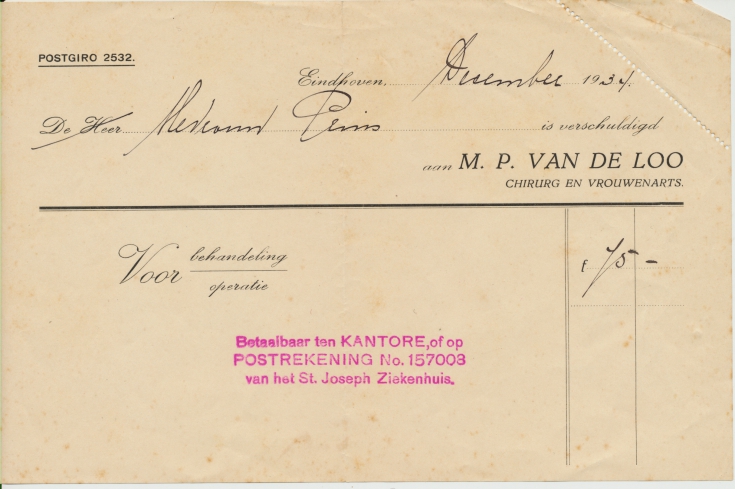 POSTGIRO 2532.
Eindhoven, December 1934.
De Heer Mevrouw Prins is verschuldigd
aan M. P. VAN DE LOO
CHIRURG EN VROUWENARTS.
Voor behandeling
operatie
f 75 -
Betaalbaar ten KANTORE, of op
POSTREKENING No. 157003
van het St. Joseph Ziekenhuis.